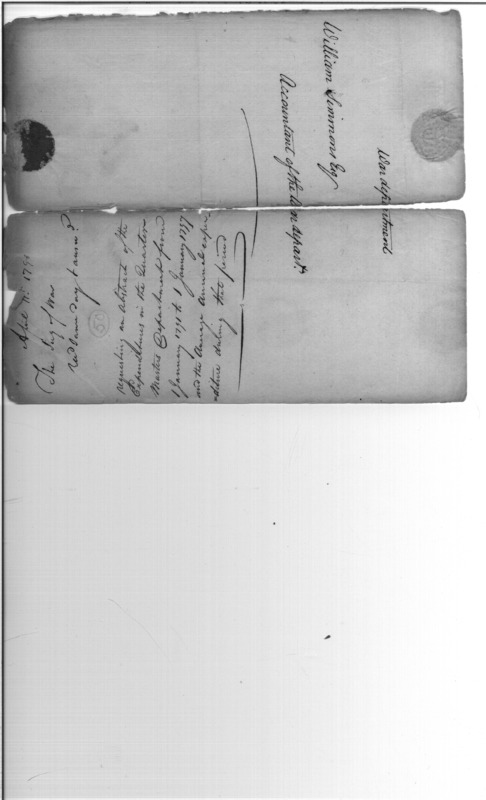 War department
William Simmons Esq
Accountant of the War depart.t
April 11. 1798
The Secy of War
Rec'd same day & answd
50
Requesting an Abstract of the
Expenditures in the Quarter
Masters Department from
1 January 1791 to 1 January 1797
and the Average Annual expen
-diture during that period